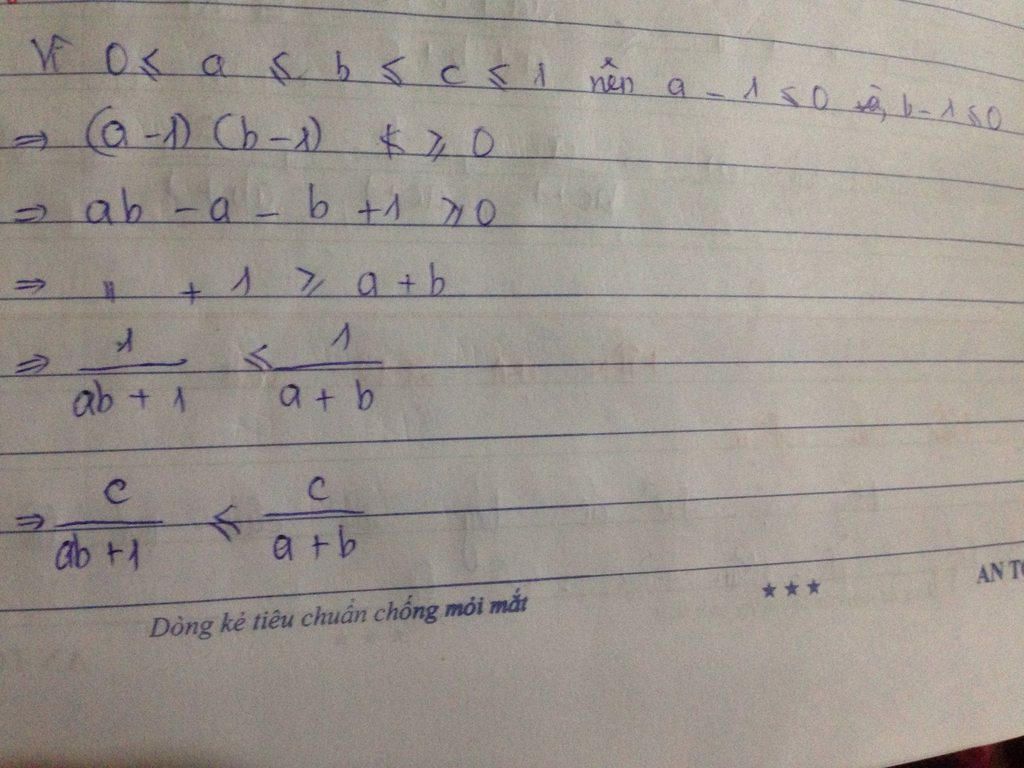 Vì 0 ≤ a ≤ b ≤ c ≤ 1 nên a - 1 ≤ 0 và b - 1 ≤ 0
⇒ (a - 1) (b - 1) ≥ 0
⇒ ab - a - b + 1 ≥ 0
⇒ " + 1 ≥ a + b
⇒ 1/(ab + 1) ≤ 1/(a + b)
⇒ c/(ab + 1) ≤ c/(a + b)
Dòng kẻ tiêu chuẩn chống mỏi mắt ★★★ AN TO